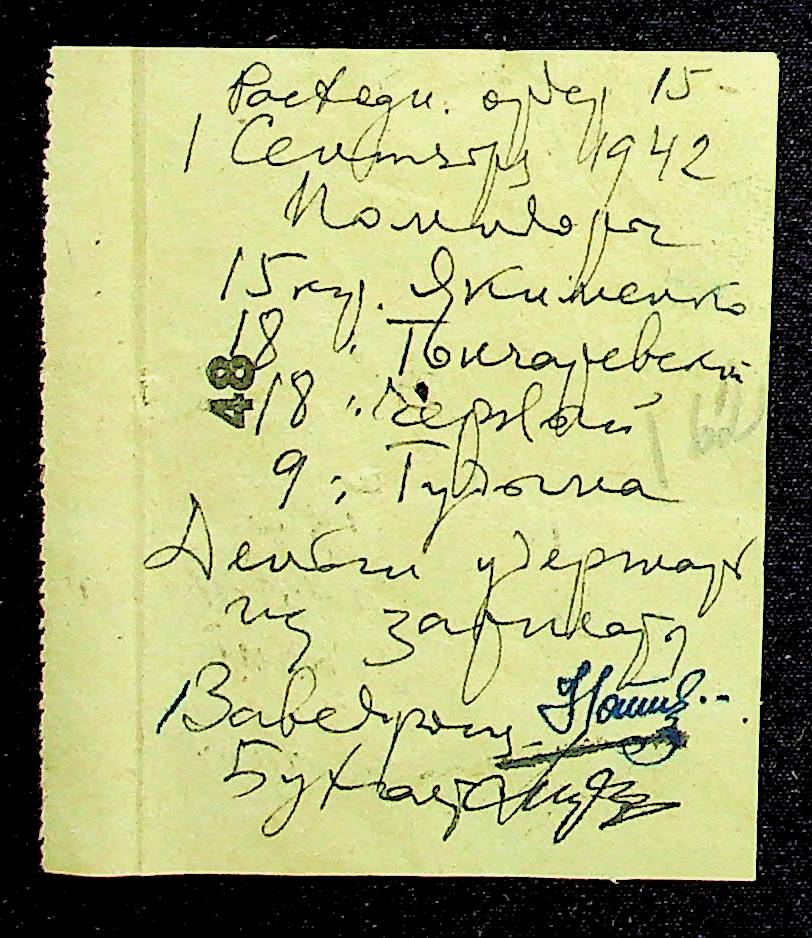 Расходн. ордер 15
1 Сентября 1942
Помидоры
15 кг. Якименко
18 " Гончаревский
18 " Черной
9 " Гудыма
Деньги удержать
из зарплаты
Завед
Бухгалтер
48